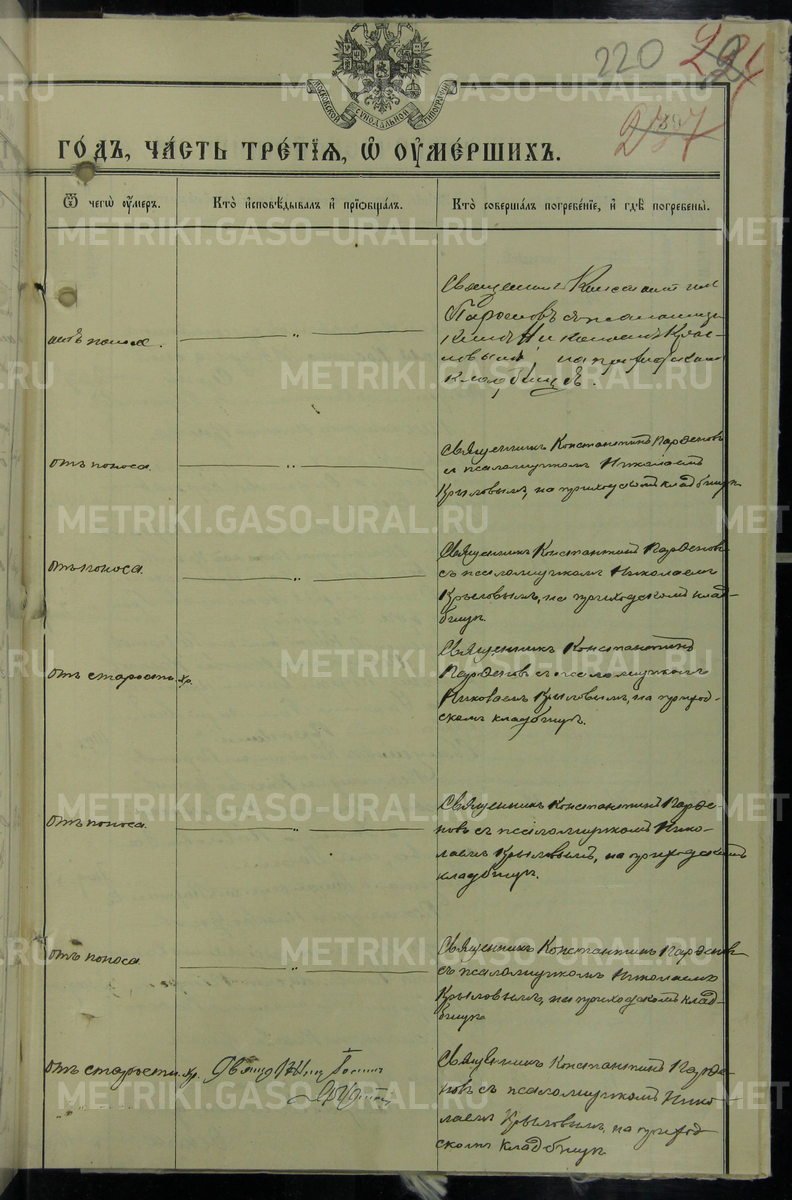 220
МОСКОВСКОЙ СѴНОДАЛЬНОЙ ТИПОГРАФІИ
ГО́ДЪ, ЧА́СТЬ ТРЕ́ТІѦ, Ѡ҆ ОУ҆МЕ́РШИХЪ.
Ѿ чегѡ̀ оу҆́меръ.
Кто̀ и҆сповѣ́дывалъ и҆ прїѡбща́лъ.
Кто̀ соверша́лъ погребе́нїе, и҆ гдѣ̀ погребены̀.
отъ поноса.
Священникъ Константинъ
Парѳеновъ съ псаломщи-
комъ Николаемъ Кры-
ловымъ на приходскомъ
кладбищѣ.
отъ поноса.
Священникъ Константинъ Парѳеновъ
съ псаломщикомъ Николаемъ
Крыловымъ, на приходскомъ кладбищѣ
отъ поноса.
Священникъ Константинъ Парѳеновъ
съ псаломщикомъ Николаемъ
Крыловымъ, на приходскомъ клад-
бищѣ.
отъ старости.
Священникъ Константинъ
Парѳеновъ съ псаломщикомъ
Николаемъ Крыловымъ, на приход-
скомъ кладбищѣ.
отъ поноса.
Священникъ Константинъ Парѳе-
новъ съ псаломщикомъ Нико-
лаемъ Крыловымъ, на приходскомъ
кладбищѣ.
отъ поноса
Священникъ Константинъ Парѳеновъ
съ псаломщикомъ Николаемъ
Крыловымъ, на приходскомъ клад-
бищѣ
отъ старости.
Священникъ Константинъ Парѳе-
новъ съ псаломщикомъ Нико-
лаемъ Крыловымъ, на приход-
скомъ кладбищѣ
METRIKI.GASO-URAL.RU